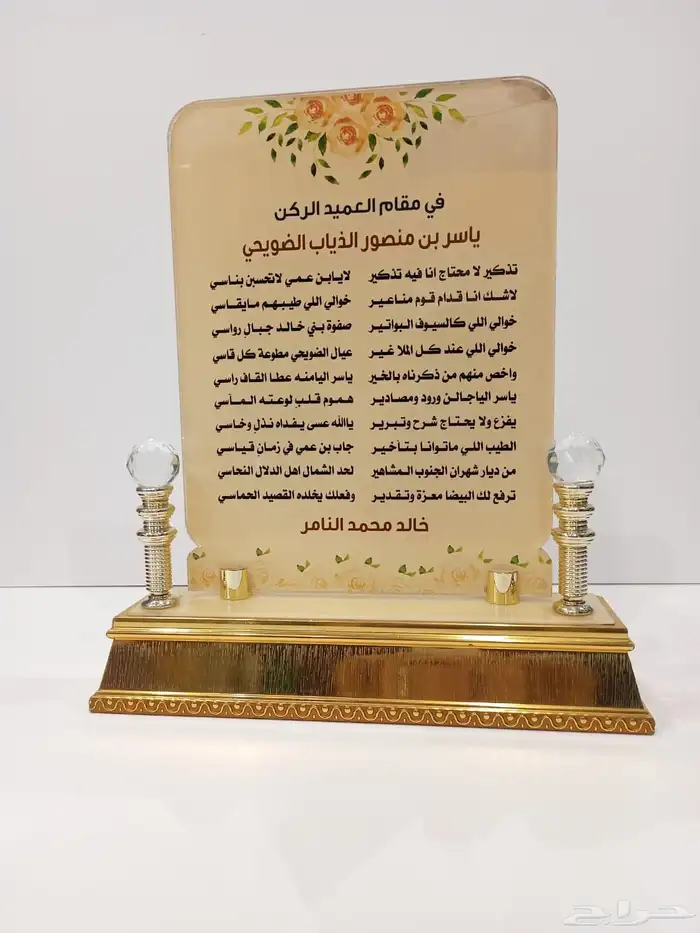 في مقام العميد الركن
ياسر بن منصور الذياب الضويحي
تذكير لا محتاج انا فيه تذكير لايابن عمي لاتحسبن بناسي
لاشك انا قدام قوم مناعير خوالي اللي طيبهم مايقاسي
خوالي اللي كالسيوف البواتير صفوة بني خالد جبال رواسي
خوالي اللي عند كل الملا غير عيال الضويحي مطوعة كل قاسي
واخص منهم من ذكرناه بالخير ياسر اليامنه عطا القاف راسي
ياسر الياجالن ورود ومصادير هموم قلب لوعته المأسي
يفزع ولا يحتاج شرح وتبرير ياالله عسى يفداه نذل وخاسي
الطيب اللي ماتوانا بتأخير جاب بن عمي في زمان قياسي
من ديار شهران الجنوب المشاهير لحد الشمال اهل الدلال النحاسي
ترفع لك البيضا معزة وتقدير وفعلك يخلده القصيد الحماسي
خالد محمد النامر
حراج